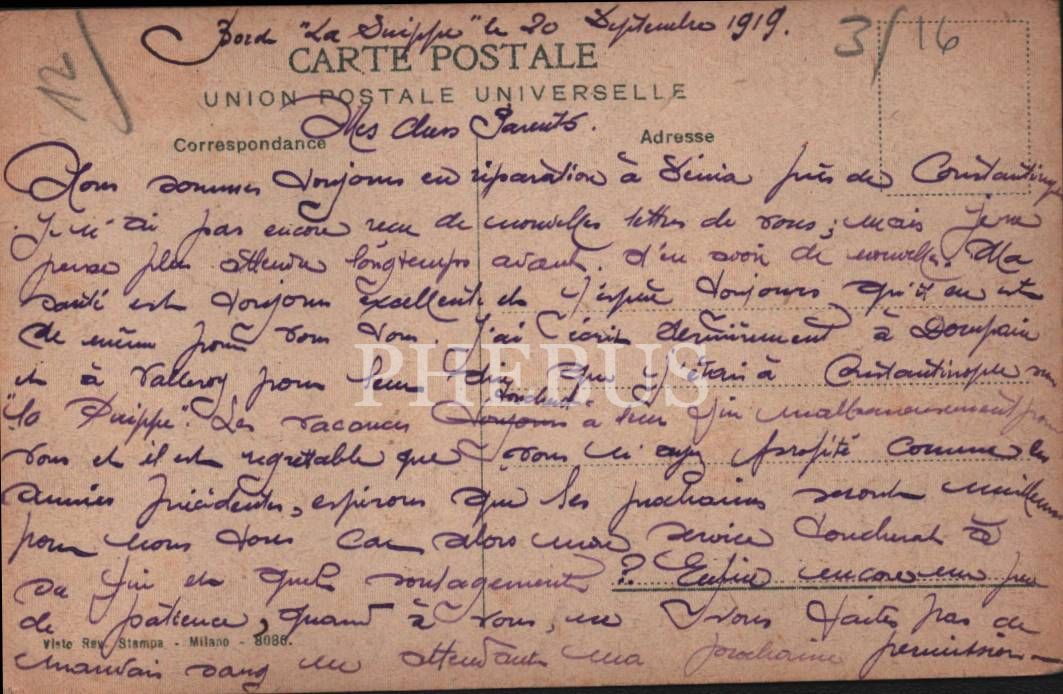 12/
Bord "La Suippe" le 20 Septembre 1919.
3/16
CARTE POSTALE
UNION POSTALE UNIVERSELLE
Mes chers Parents.
Correspondance
Adresse
Nous sommes toujours en réparation à Sténia près de Constantinople
Je n'ai pas encore reçu de nouvelles lettres de vous; mais je ne
pense plus attendre longtemps avant d'en avoir de nouvelles. Ma
santé est toujours excellente et j'espère toujours qu'il en est
de même pour vous tous. J'ai écrit dernièrement à Dompaire
et à Valleroy pour leur dire que j'étais à Constantinople sur
"la Suippe". Les vacances touchent à leur fin malheureusement pour
vous et il est regrettable que vous n'ayez profité comme les
années précédentes, espérons que les prochaines seront meilleures
pour nous tous car alors mon service touchera à
sa fin et quel soulagement? Enfin encore un peu
de patience, quand à vous, ne vous faites pas de
mauvais sang en attendant ma prochaine permission
Visto Rev. Stampa - Milano - 8086.
PHEBUS